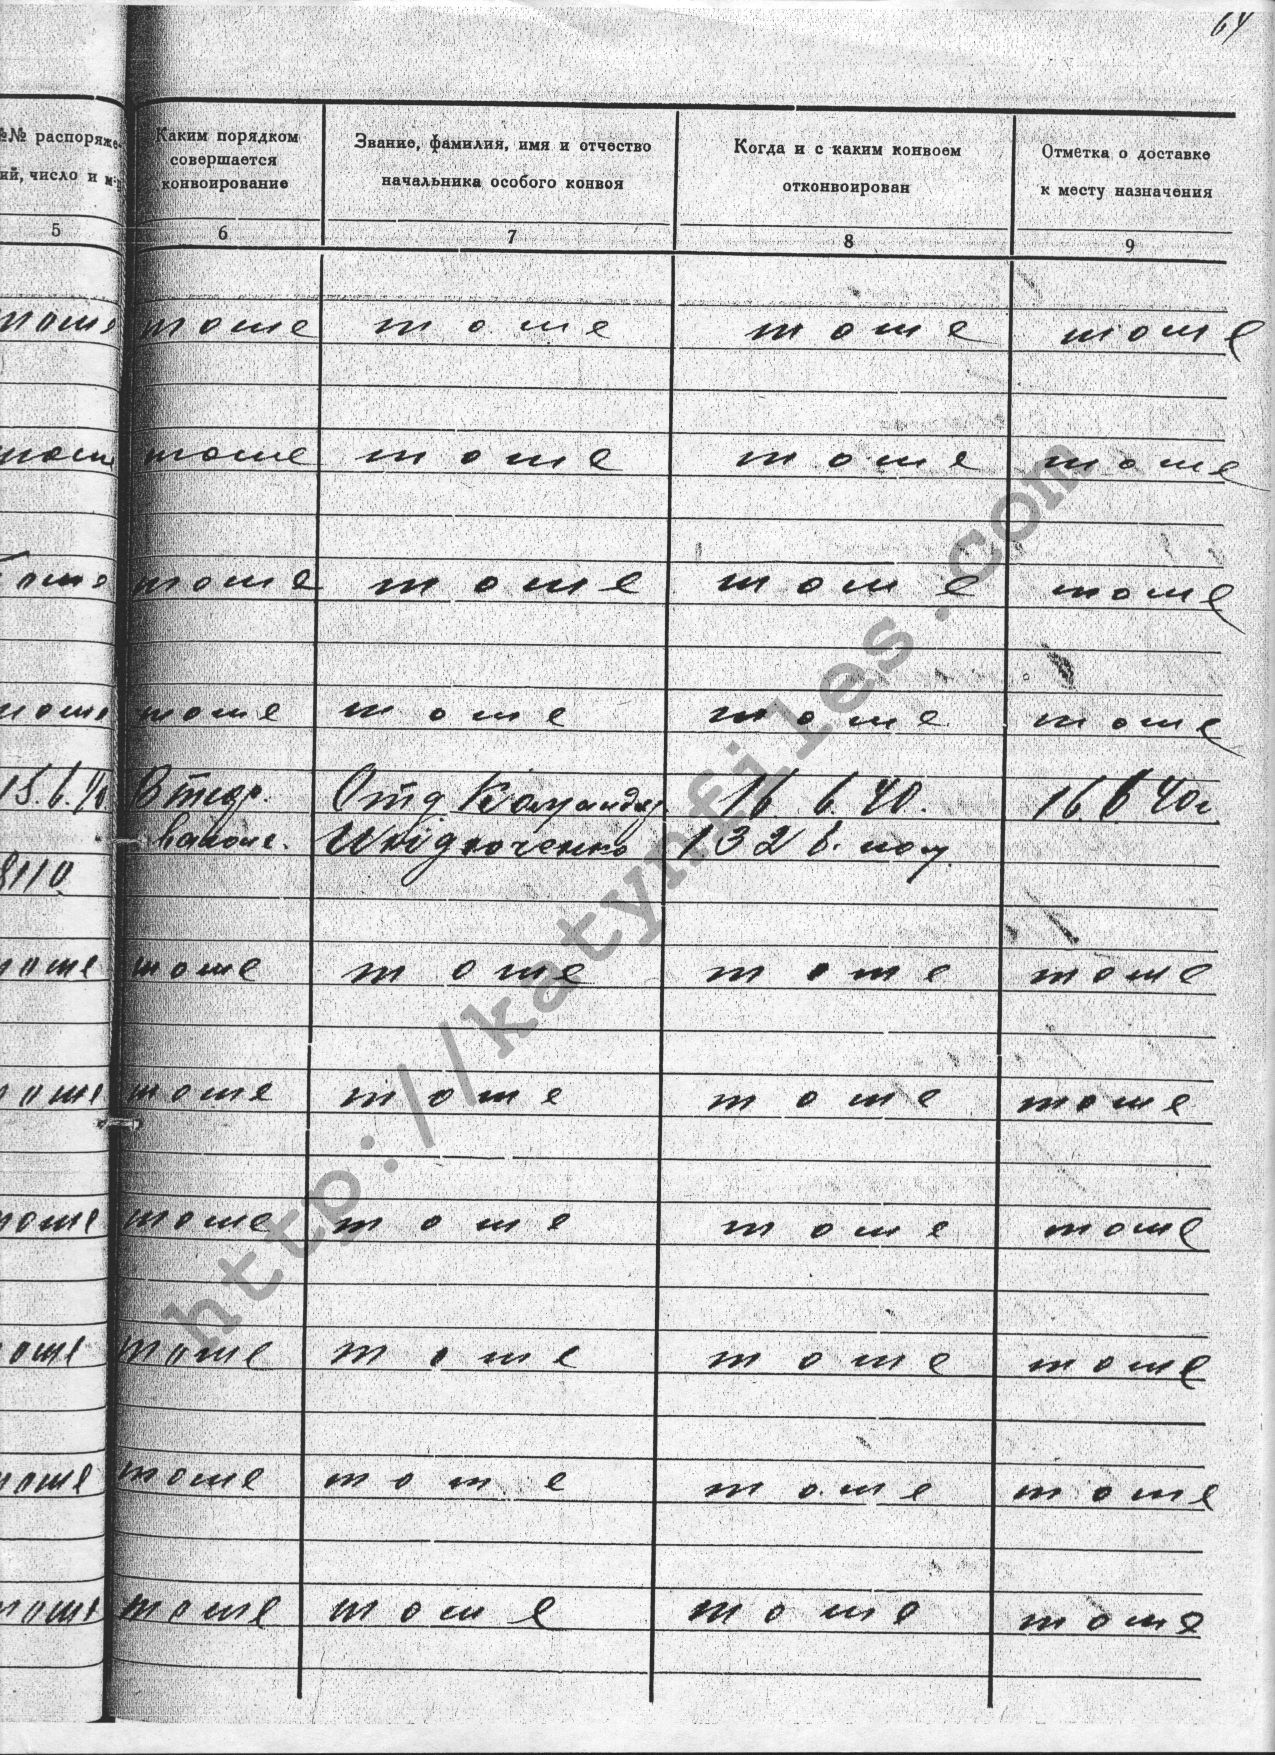 64
№№ распоряже-
ий, число и м-ц
Каким порядком
совершается
конвоирование
Звание, фамилия, имя и отчество
начальника особого конвоя
Когда и с каким конвоем
отконвоирован
Отметка о доставке
к месту назначения
5 6 7 8 9
тоше тоше тоше тоше тоше
тоше тоше тоше тоше тоше
Тоше тоше тоше тоше тоше
тоше тоше тоше тоше тоше
15.6.40 В тюр. Отд Командир 16. 6. 40. 16. 6 40г
вагоне. 132 б. пол.
8110
тоше тоше тоше тоше тоше
тоше тоше тоше тоше тоше
тоше тоше тоше тоше тоше
тоше тоше тоше тоше тоше
тоше тоше тоше тоше тоше
тоше тоше тоше тоше тоше
http://katynfiles.com